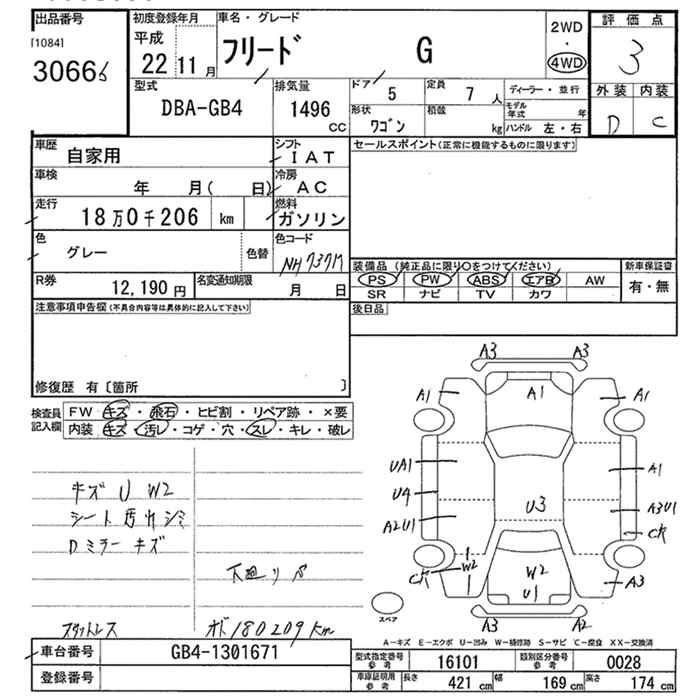 出品番号 初度登録年月 車名・グレード 2WD・4WD 評価点
[1084] 平成 フリード G 3
3066 22 11月
外装 内装
D C
型式 排気量 ドア 5 定員 7人 ディーラー・並行
DBA-GB4 1496 CC 形状 ワゴン 積載 kg モデル年式 年
ハンドル 左・右
車歴 自家用 シフト IAT セールスポイント(正常に機能するものに限ります)
車検 年 月( 日) 冷房 AC
走行 18万0千206 km 燃料 ガソリン
色 グレー 色替 色コード NH737M
装備品(純正品に限り○をつけてください) 新車保証書
PS PW ABS エアB AW 有・無
SR ナビ TV カワ
R券 12,190円 名変通知期限 月 日
後日品
注意事項申告欄(不具合内容等は具体的に記入して下さい)
修復歴 有〔箇所 〕
検査員記入欄 FW キズ・飛石・ヒビ割・リペア跡・×要
内装 キズ・汚レ・コゲ・穴・スレ・キレ・破レ
A3 A3
A1 A1 A1
UA1 A1
U4 U3 A3U1
A2U1 Cホ
Cホ W2 W2 A3
U1
A3 A2
スペア
キズ U W2
シート汚れシミ
Dミラー キズ
下廻りペ
スタットレス オド180209km
A-キズ E-エクボ U-凹み W-補修跡 S-サビ C-腐食 XX-交換済
車台番号 GB4-1301671 型式指定番号参考 16101 類別区分番号参考 0028
登録番号 車庫証明用参考 長さ 421cm 幅 169cm 高さ 174cm